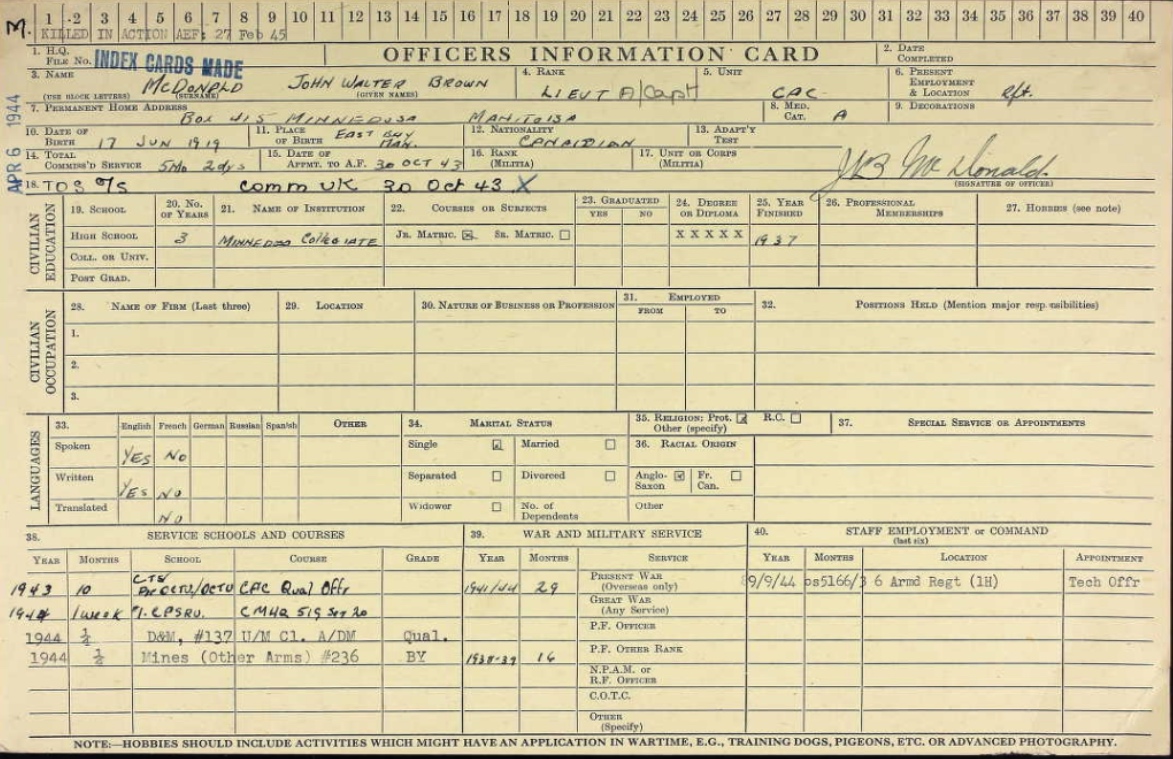 M.
1 2 3 4 5 6 7 8 9 10 11 12 13 14 15 16 17 18 19 20 21 22 23 24 25 26 27 28 29 30 31 32 33 34 35 36 37 38 39 40
KILLED IN ACTION AEF: 27 Feb 45
1. H.Q. FILE No. INDEX CARDS MADE
OFFICERS INFORMATION CARD
2. DATE COMPLETED
APR 6 1944
3. NAME (USE BLOCK LETTERS) McDONALD (SURNAME) JOHN WALTER BROWN (GIVEN NAMES)
4. RANK LIEUT A/Capt
5. UNIT CAC
6. PRESENT EMPLOYMENT & LOCATION Rft.
7. PERMANENT HOME ADDRESS BOX 415 MINNEDOSA MANITOBA
8. MED. CAT. A
9. DECORATIONS
10. DATE OF BIRTH 17 JUN 1919
11. PLACE OF BIRTH EAST BAY MAN.
12. NATIONALITY CANADIAN
13. ADAPT'Y TEST
14. TOTAL COMMISS'D SERVICE 5Mo 2dys
15. DATE OF APPMT. TO A.F. 30 OCT 43
16. RANK (MILITIA)
17. UNIT OR CORPS (MILITIA)
JWB McDonald.
(SIGNATURE OF OFFICER)
18. TOS O/S Comm UK 30 Oct 43 X
CIVILIAN EDUCATION
19. SCHOOL
20. No. OF YEARS
21. NAME OF INSTITUTION
22. COURSES OR SUBJECTS
23. GRADUATED YES NO
24. DEGREE OR DIPLOMA
25. YEAR FINISHED
26. PROFESSIONAL MEMBERSHIPS
27. HOBBIES (see note)
HIGH SCHOOL 3 Collegiate JR. MATRIC. SR. MATRIC. X X X X X 1937
COLL. OR UNIV.
POST GRAD.
CIVILIAN OCCUPATION
28. NAME OF FIRM (Last three)
29. LOCATION
30. NATURE OF BUSINESS OR PROFESSION
31. EMPLOYED FROM TO
32. POSITIONS HELD (Mention major responsibilities)
1.
2.
3.
LANGUAGES
33. English French German Russian Spanish OTHER
Spoken YES NO
Written YES NO
Translated NO
34. MARITAL STATUS
Single Married
Separated Divorced
Widower No. of Dependents
35. RELIGION: Prot. R.C.
Other (specify)
36. RACIAL ORIGIN
Anglo-Saxon Fr. Can.
Other
37. SPECIAL SERVICE OR APPOINTMENTS
38. SERVICE SCHOOLS AND COURSES
YEAR MONTHS SCHOOL COURSE GRADE
1943 10 CTS OCTU CAC Qual Offr
1944 1 week CMHQ 519 Ser 20
1944 ½ D&M, #137 U/M Cl. A/DM Qual.
1944 ½ Mines (Other Arms) #236 BY
39. WAR AND MILITARY SERVICE
YEAR MONTHS SERVICE
1941/44 29 PRESENT WAR (Overseas only)
GREAT WAR (Any Service)
P.F. OFFICER
1938-39 16 P.F. OTHER RANK
N.P.A.M. or R.F. OFFICER
C.O.T.C.
OTHER (Specify)
40. STAFF EMPLOYMENT or COMMAND (last six)
YEAR MONTHS LOCATION APPOINTMENT
9/9/44 os5166/3 6 Armd Regt (1H) Tech Offr
NOTE:—HOBBIES SHOULD INCLUDE ACTIVITIES WHICH MIGHT HAVE AN APPLICATION IN WARTIME, E.G., TRAINING DOGS, PIGEONS, ETC. OR ADVANCED PHOTOGRAPHY.